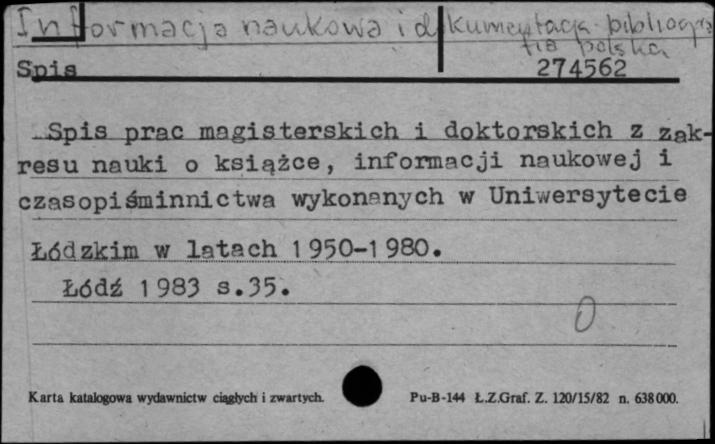 Informacja naukowa i dokumentacja - bibliogra
fia polska
Spis 274562
Spis prac magisterskich i doktorskich z zak-
resu nauki o książce, informacji naukowej i
czasopiśminnictwa wykonanych w Uniwersytecie
Łódzkim w latach 1950-1980.
Łódź 1983 s.35.
0
Karta katalogowa wydawnictw ciągłych i zwartych. Pu-B-144 Ł.Z.Graf. Z. 120/15/82 n. 638000.